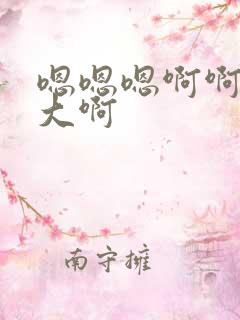 嗯嗯嗯啊啊
大啊
南守擁